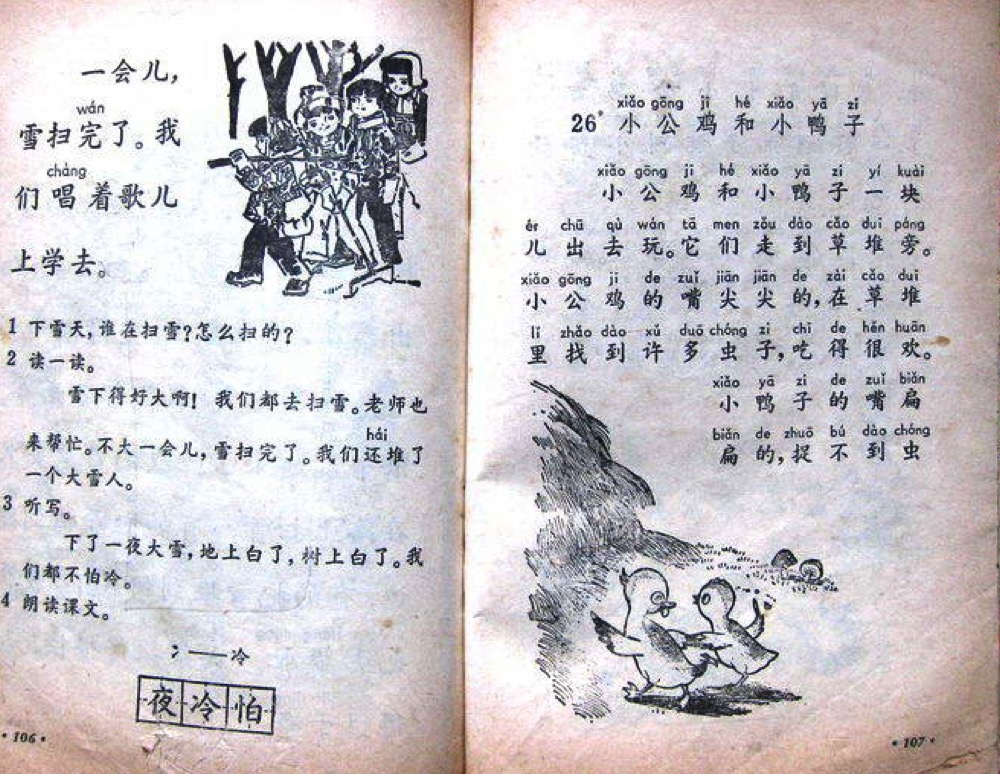 一会儿,
wán
雪扫完了。我
chàng
们唱着歌儿
上学去。
1 下雪天,谁在扫雪?怎么扫的?
2 读一读。
雪下得好大啊! 我们都去扫雪。老师也
hái
来帮忙。不大一会儿,雪扫完了。我们还堆了
一个大雪人。
3 听写。
下了一夜大雪,地上白了,树上白了。我
们都不怕冷。
4 朗读课文。
冫——冷
夜冷怕
·106·
xiǎo gōng jī hé xiǎo yā zi
26* 小公鸡和小鸭子
xiǎo gōng jī hé xiǎo yā zi yí kuài
小公鸡和小鸭子一块
ér chū qù wán tā men zǒu dào cǎo duī páng
儿出去玩。它们走到草堆旁。
xiǎo gōng jī de zuǐ jiān jiān de zài cǎo duī
小公鸡的嘴尖尖的,在草堆
lǐ zhǎo dào xǔ duō chóng zi chī de hěn huān
里找到许多虫子,吃得很欢。
xiǎo yā zi de zuǐ biǎn
小鸭子的嘴扁
biǎn de zhuō bú dào chóng
扁的,捉不到虫
·107·